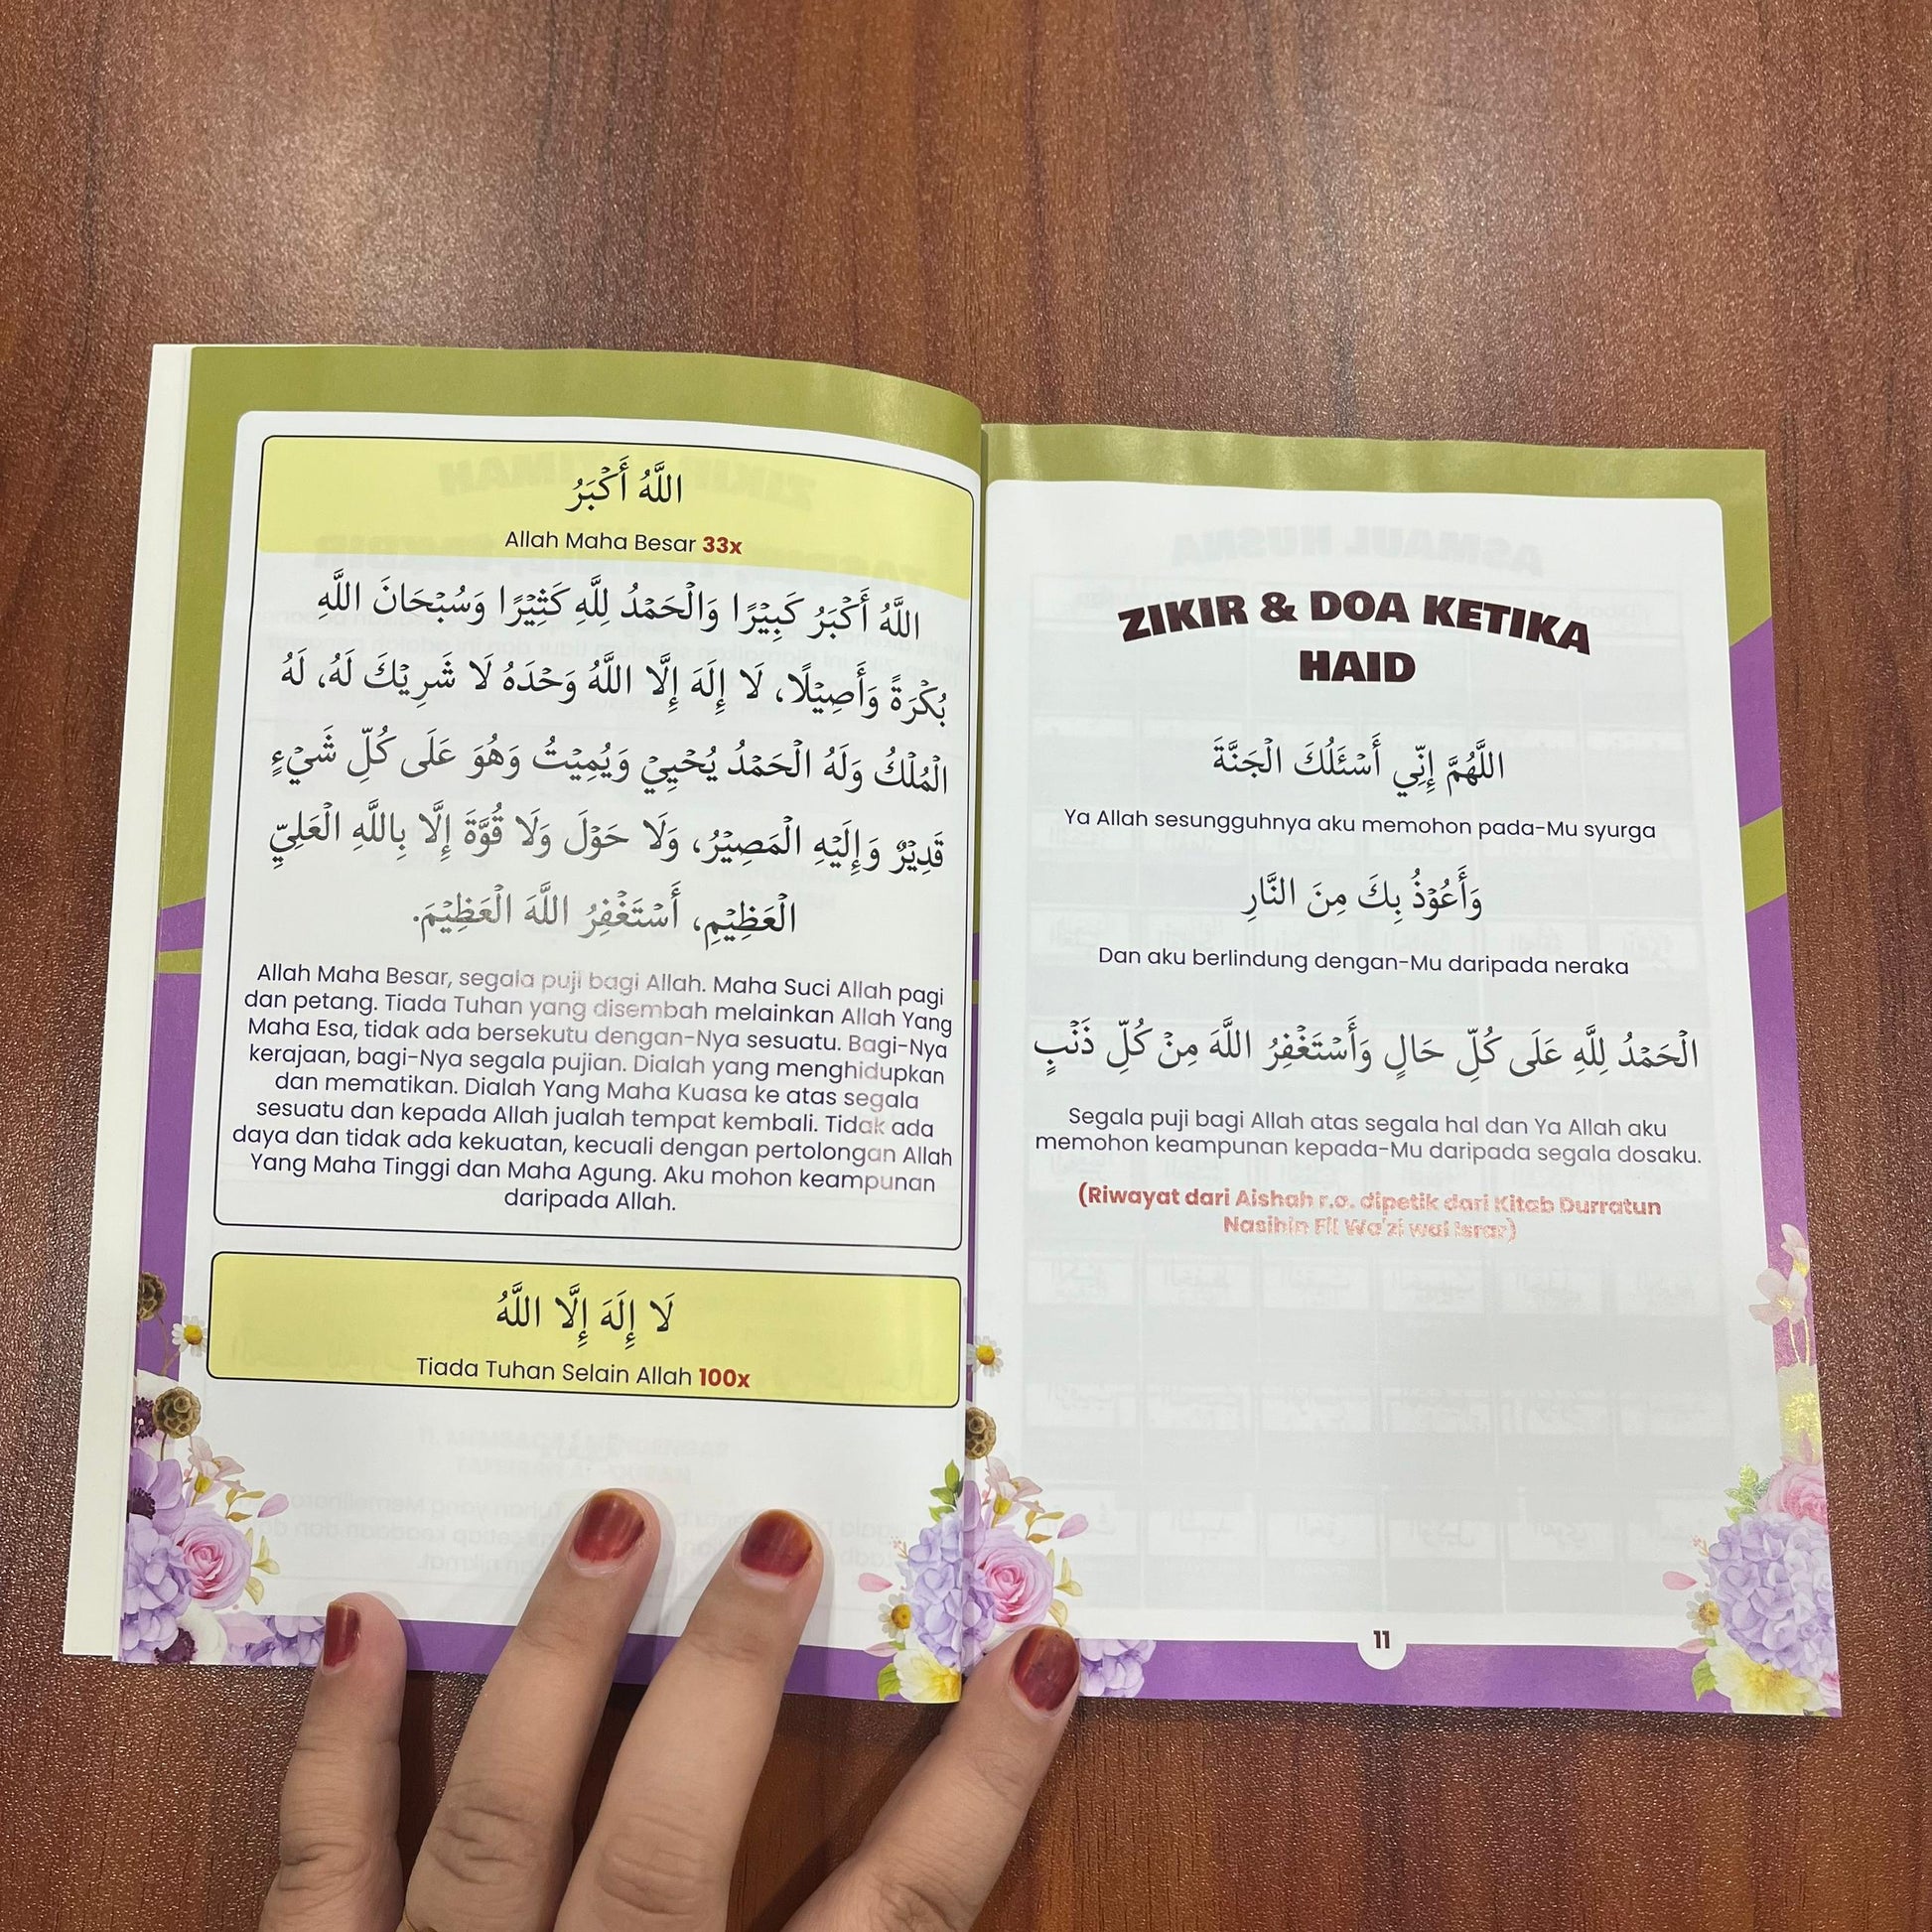 اللَّهُ أَكْبَرُ
Allah Maha Besar 33x
اللَّهُ أَكْبَرُ كَبِيْرًا وَالْحَمْدُ لِلَّهِ كَثِيْرًا وَسُبْحَانَ اللَّهِ
بُكْرَةً وَأَصِيْلًا، لَا إِلَهَ إِلَّا اللَّهُ وَحْدَهُ لَا شَرِيْكَ لَهُ، لَهُ
الْمُلْكُ وَلَهُ الْحَمْدُ يُحْيِيْ وَيُمِيْتُ وَهُوَ عَلَى كُلِّ شَيْءٍ
قَدِيْرٌ وَإِلَيْهِ الْمَصِيْرُ، وَلَا حَوْلَ وَلَا قُوَّةَ إِلَّا بِاللَّهِ الْعَلِيِّ
الْعَظِيْمِ، أَسْتَغْفِرُ اللَّهَ الْعَظِيْمَ.
Allah Maha Besar, segala puji bagi Allah. Maha Suci Allah pagi
dan petang. Tiada Tuhan yang disembah melainkan Allah Yang
Maha Esa, tidak ada bersekutu dengan-Nya sesuatu. Bagi-Nya
kerajaan, bagi-Nya segala pujian. Dialah yang menghidupkan
dan mematikan. Dialah Yang Maha Kuasa ke atas segala
sesuatu dan kepada Allah jualah tempat kembali. Tidak ada
daya dan tidak ada kekuatan, kecuali dengan pertolongan Allah
Yang Maha Tinggi dan Maha Agung. Aku mohon keampunan
daripada Allah.
لَا إِلَهَ إِلَّا اللَّهُ
Tiada Tuhan Selain Allah 100x
ZIKIR & DOA KETIKA
HAID
اللَّهُمَّ إِنِّي أَسْئَلُكَ الْجَنَّةَ
Ya Allah sesungguhnya aku memohon pada-Mu syurga
وَأَعُوْذُ بِكَ مِنَ النَّارِ
Dan aku berlindung dengan-Mu daripada neraka
الْحَمْدُ لِلَّهِ عَلَى كُلِّ حَالٍ وَأَسْتَغْفِرُ اللَّهَ مِنْ كُلِّ ذَنْبٍ
Segala puji bagi Allah atas segala hal dan Ya Allah aku
memohon keampunan kepada-Mu daripada segala dosaku.
(Riwayat dari Aishah r.a. dipetik dari Kitab Durratun
Nasihin Fil Wa'zi wal Israr)
11